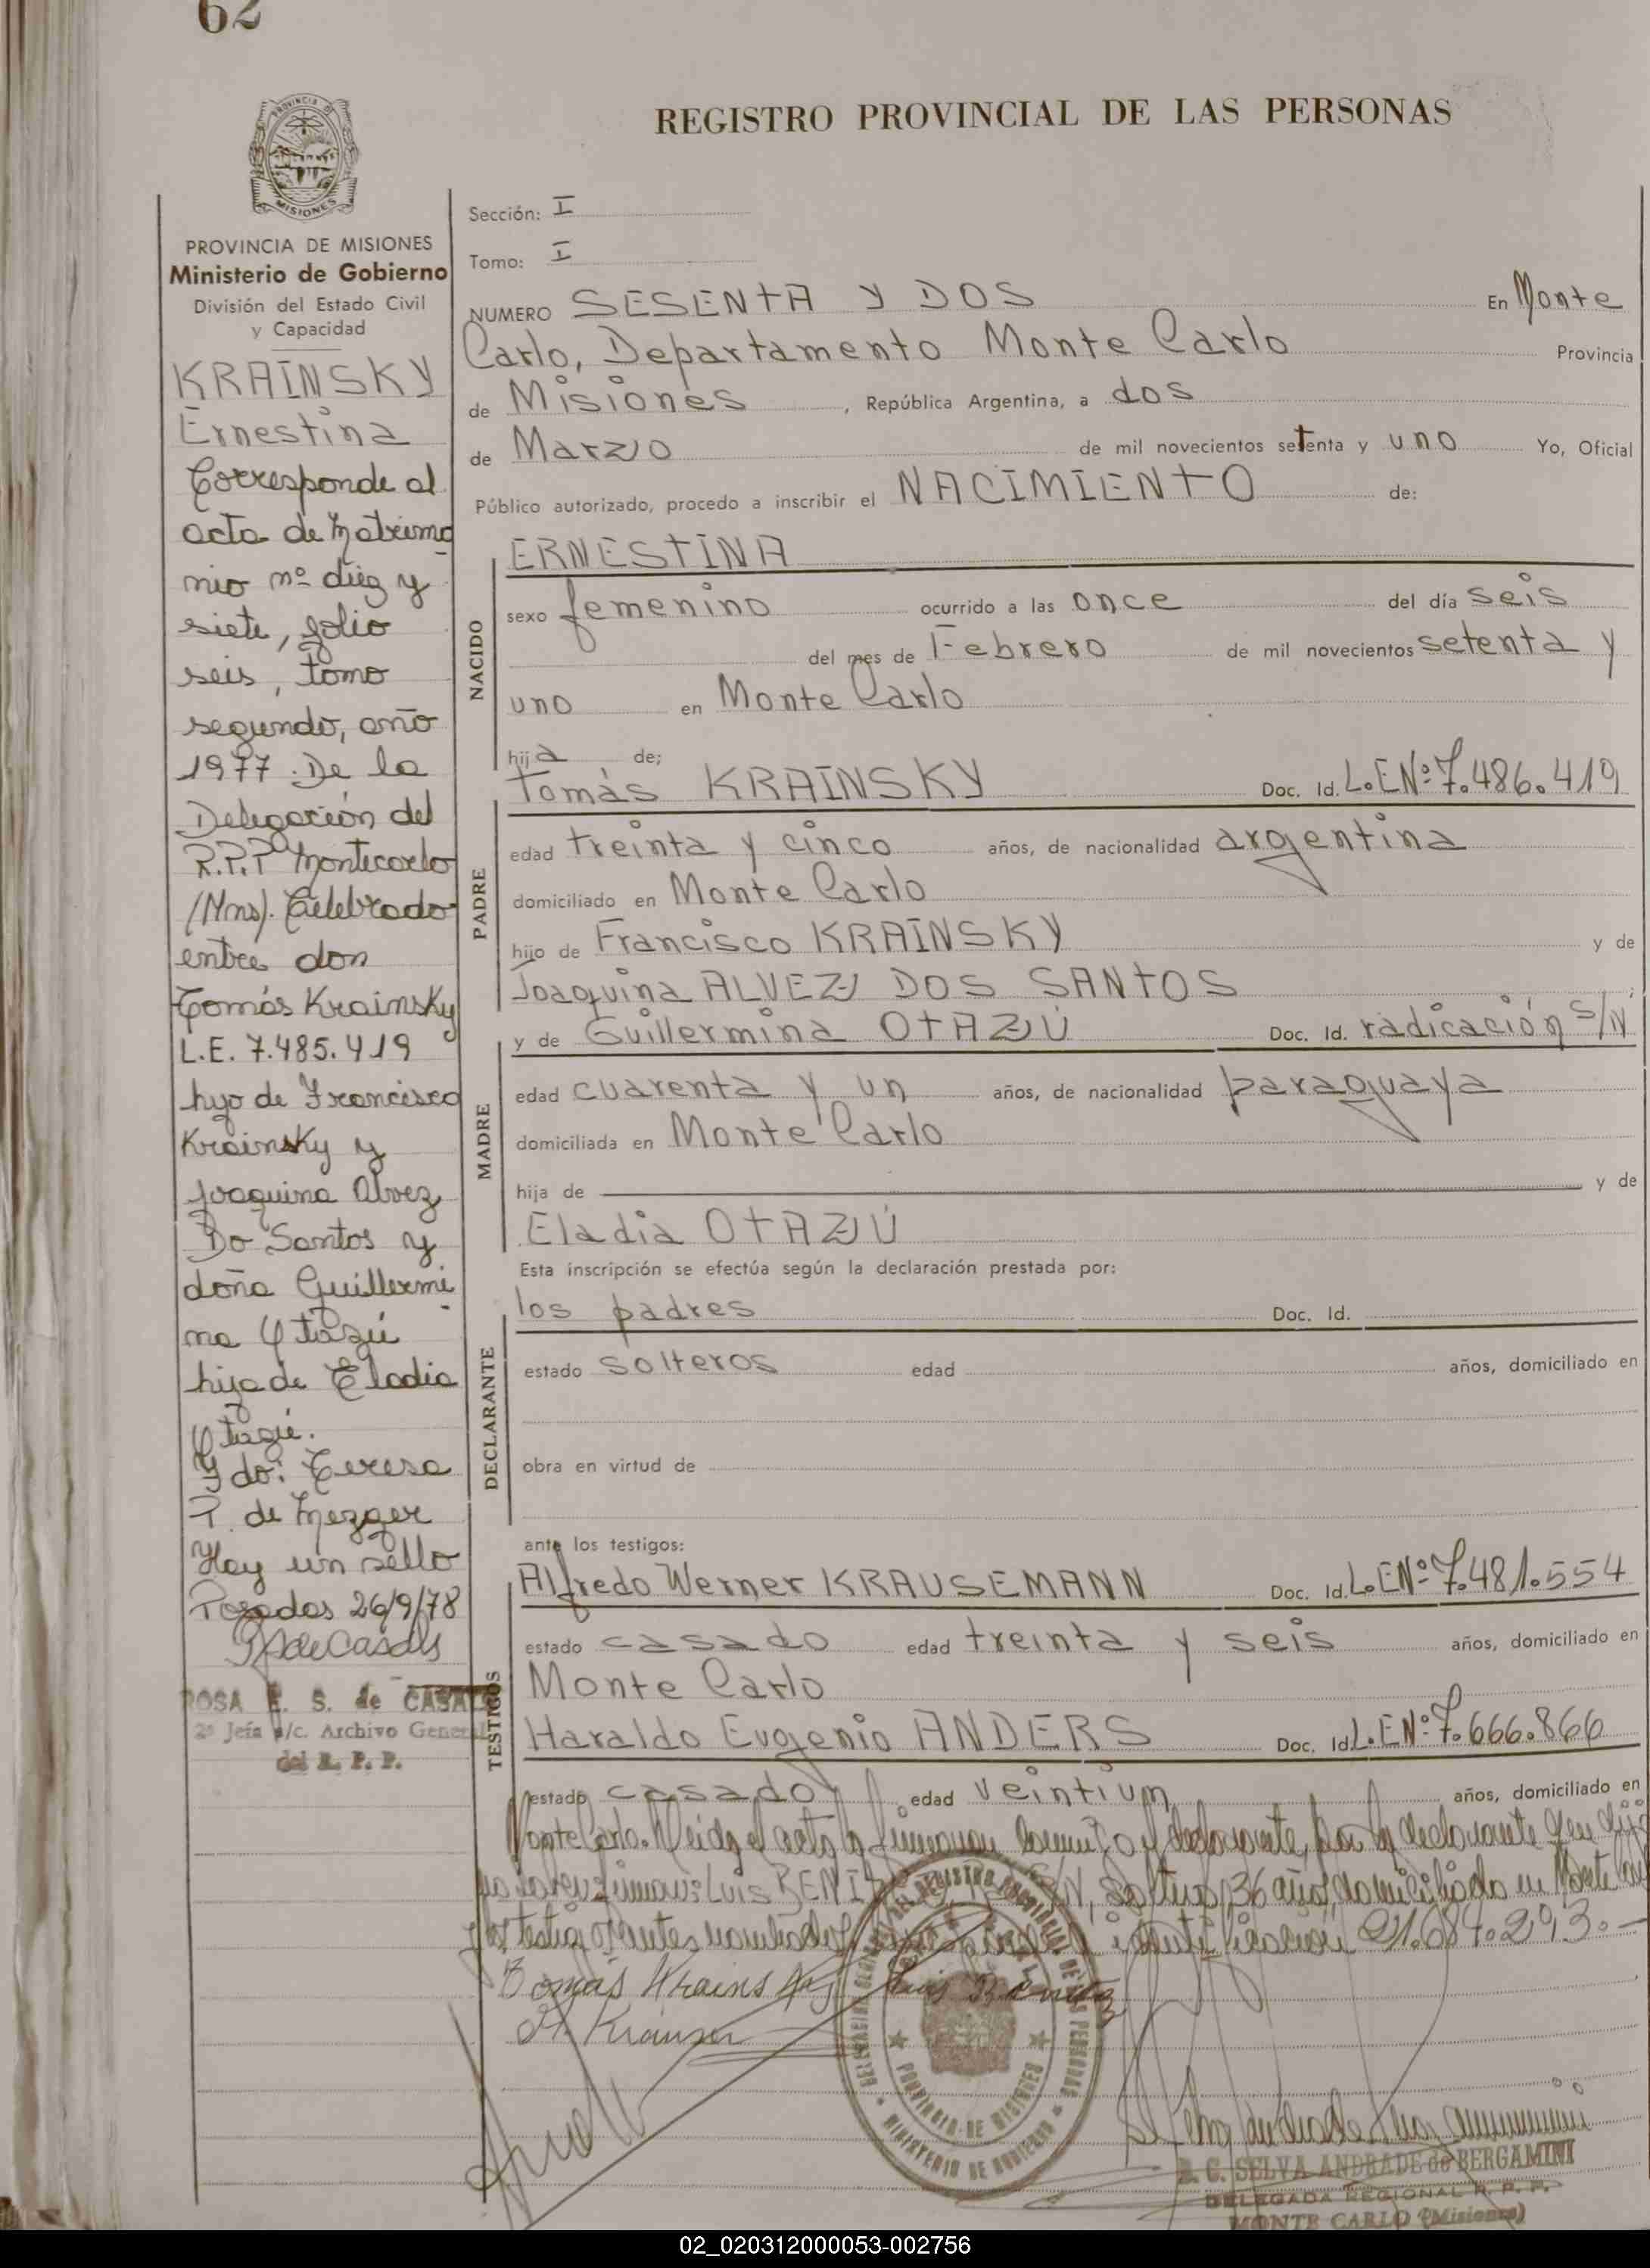 62
PROVINCIA DE
MISIONES
PROVINCIA DE MISIONES
Ministerio de Gobierno
División del Estado Civil
y Capacidad
KRAINSKY
Ernestina
Corresponde al
acta de Matrimo
nio nº diez y
siete, folio
seis, tomo
segundo, año
1977. De la
Delegación del
R.P.P Montecarlo
(Mns). Celebrado
entre don
Tomás Krainsky
L.E. 7.485.419
hijo de Francisco
Krainsky y
Joaquina Alvez
Do Santos y
doña Guillermi
na Otazú
hija de Eladia
Otazú.
Fdo: Teresa
P. de Mezger
Hay un sello
Posadas 26/9/78
ROSA E. S. de CASALS
2ª Jefa a/c. Archivo General
del R. P. P.
REGISTRO PROVINCIAL DE LAS PERSONAS
Sección: I
Tomo: I
NUMERO SESENTA Y DOS En Monte
Carlo, Departamento Monte Carlo Provincia
de Misiones, República Argentina, a dos
de Marzo de mil novecientos setenta y uno Yo, Oficial
Público autorizado, procedo a inscribir el NACIMIENTO de:
NACIDO
ERNESTINA
sexo femenino ocurrido a las once del día seis
del mes de Febrero de mil novecientos setenta y
uno en Monte Carlo
hija de;
PADRE
Tomás KRAINSKY Doc. Id. L.E Nº 7.486.419
edad treinta y cinco años, de nacionalidad argentina
domiciliado en Monte Carlo
hijo de Francisco KRAINSKY y de
Joaquina ALVEZ DOS SANTOS ;
MADRE
y de Guillermina OTAZÚ Doc. Id. radicación S/N
edad cuarenta y un años, de nacionalidad paraguaya
domiciliada en Monte Carlo
hija de y de
Eladia OTAZÚ
Esta inscripción se efectúa según la declaración prestada por:
DECLARANTE
los padres Doc. Id.
estado solteros edad años, domiciliado en
obra en virtud de
ante los testigos:
TESTIGOS
Alfredo Werner KRAUSEMANN Doc. Id. L.E Nº 7.481.554
estado casado edad treinta y seis años, domiciliado en
Monte Carlo
Haraldo Eugenio ANDERS Doc. Id. L.E Nº 7.666.866
estado casado edad veintiun años, domiciliado en
Monte Carlo. Leida el acta la firman conmigo el declarante, por la declarante que dijo
no saber firmar: Luis soltero, 36 años, domiciliado en Monte
y los testigos antes nombrados
Tomás Krainsky Luis Benitez
PROVINCIA DE MISIONES
MINISTERIO DE GOBIERNO
B. C. SELVA ANDRADE de BERGAMINI
DELEGADA REGIONAL R. P. P.
MONTE CARLO (Misiones)
02_020312000053-002756